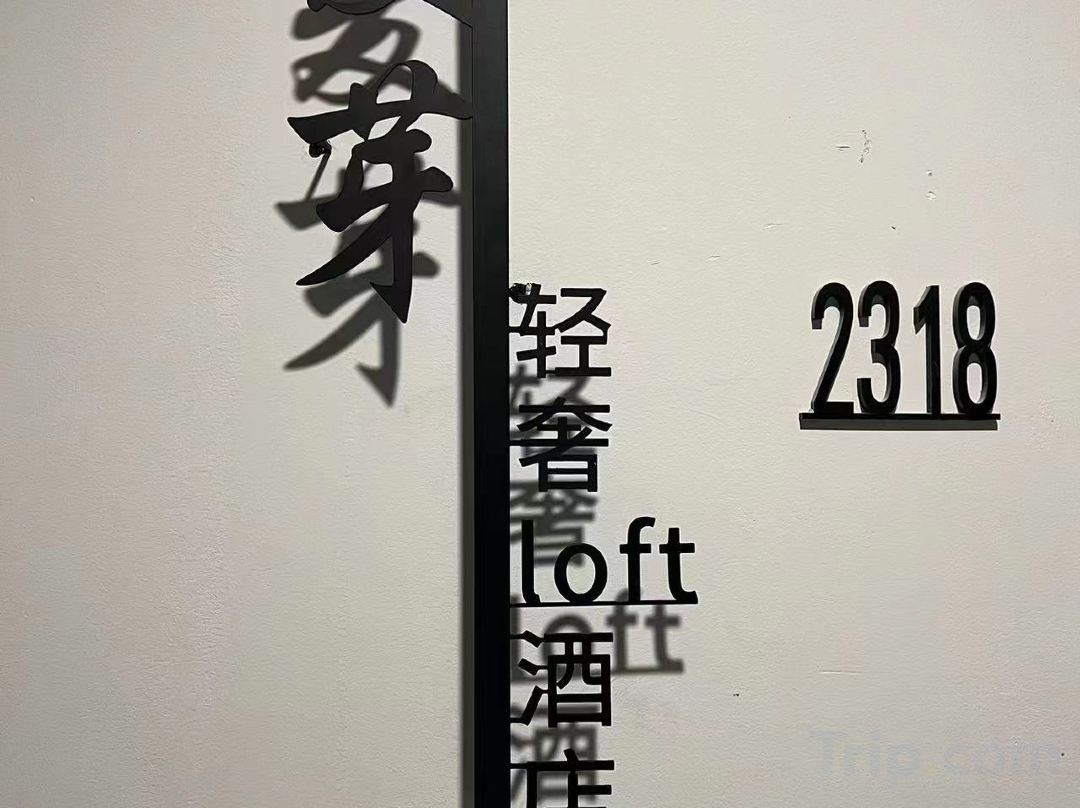 芽
轻
奢
loft
酒
店
2318
Trip.com